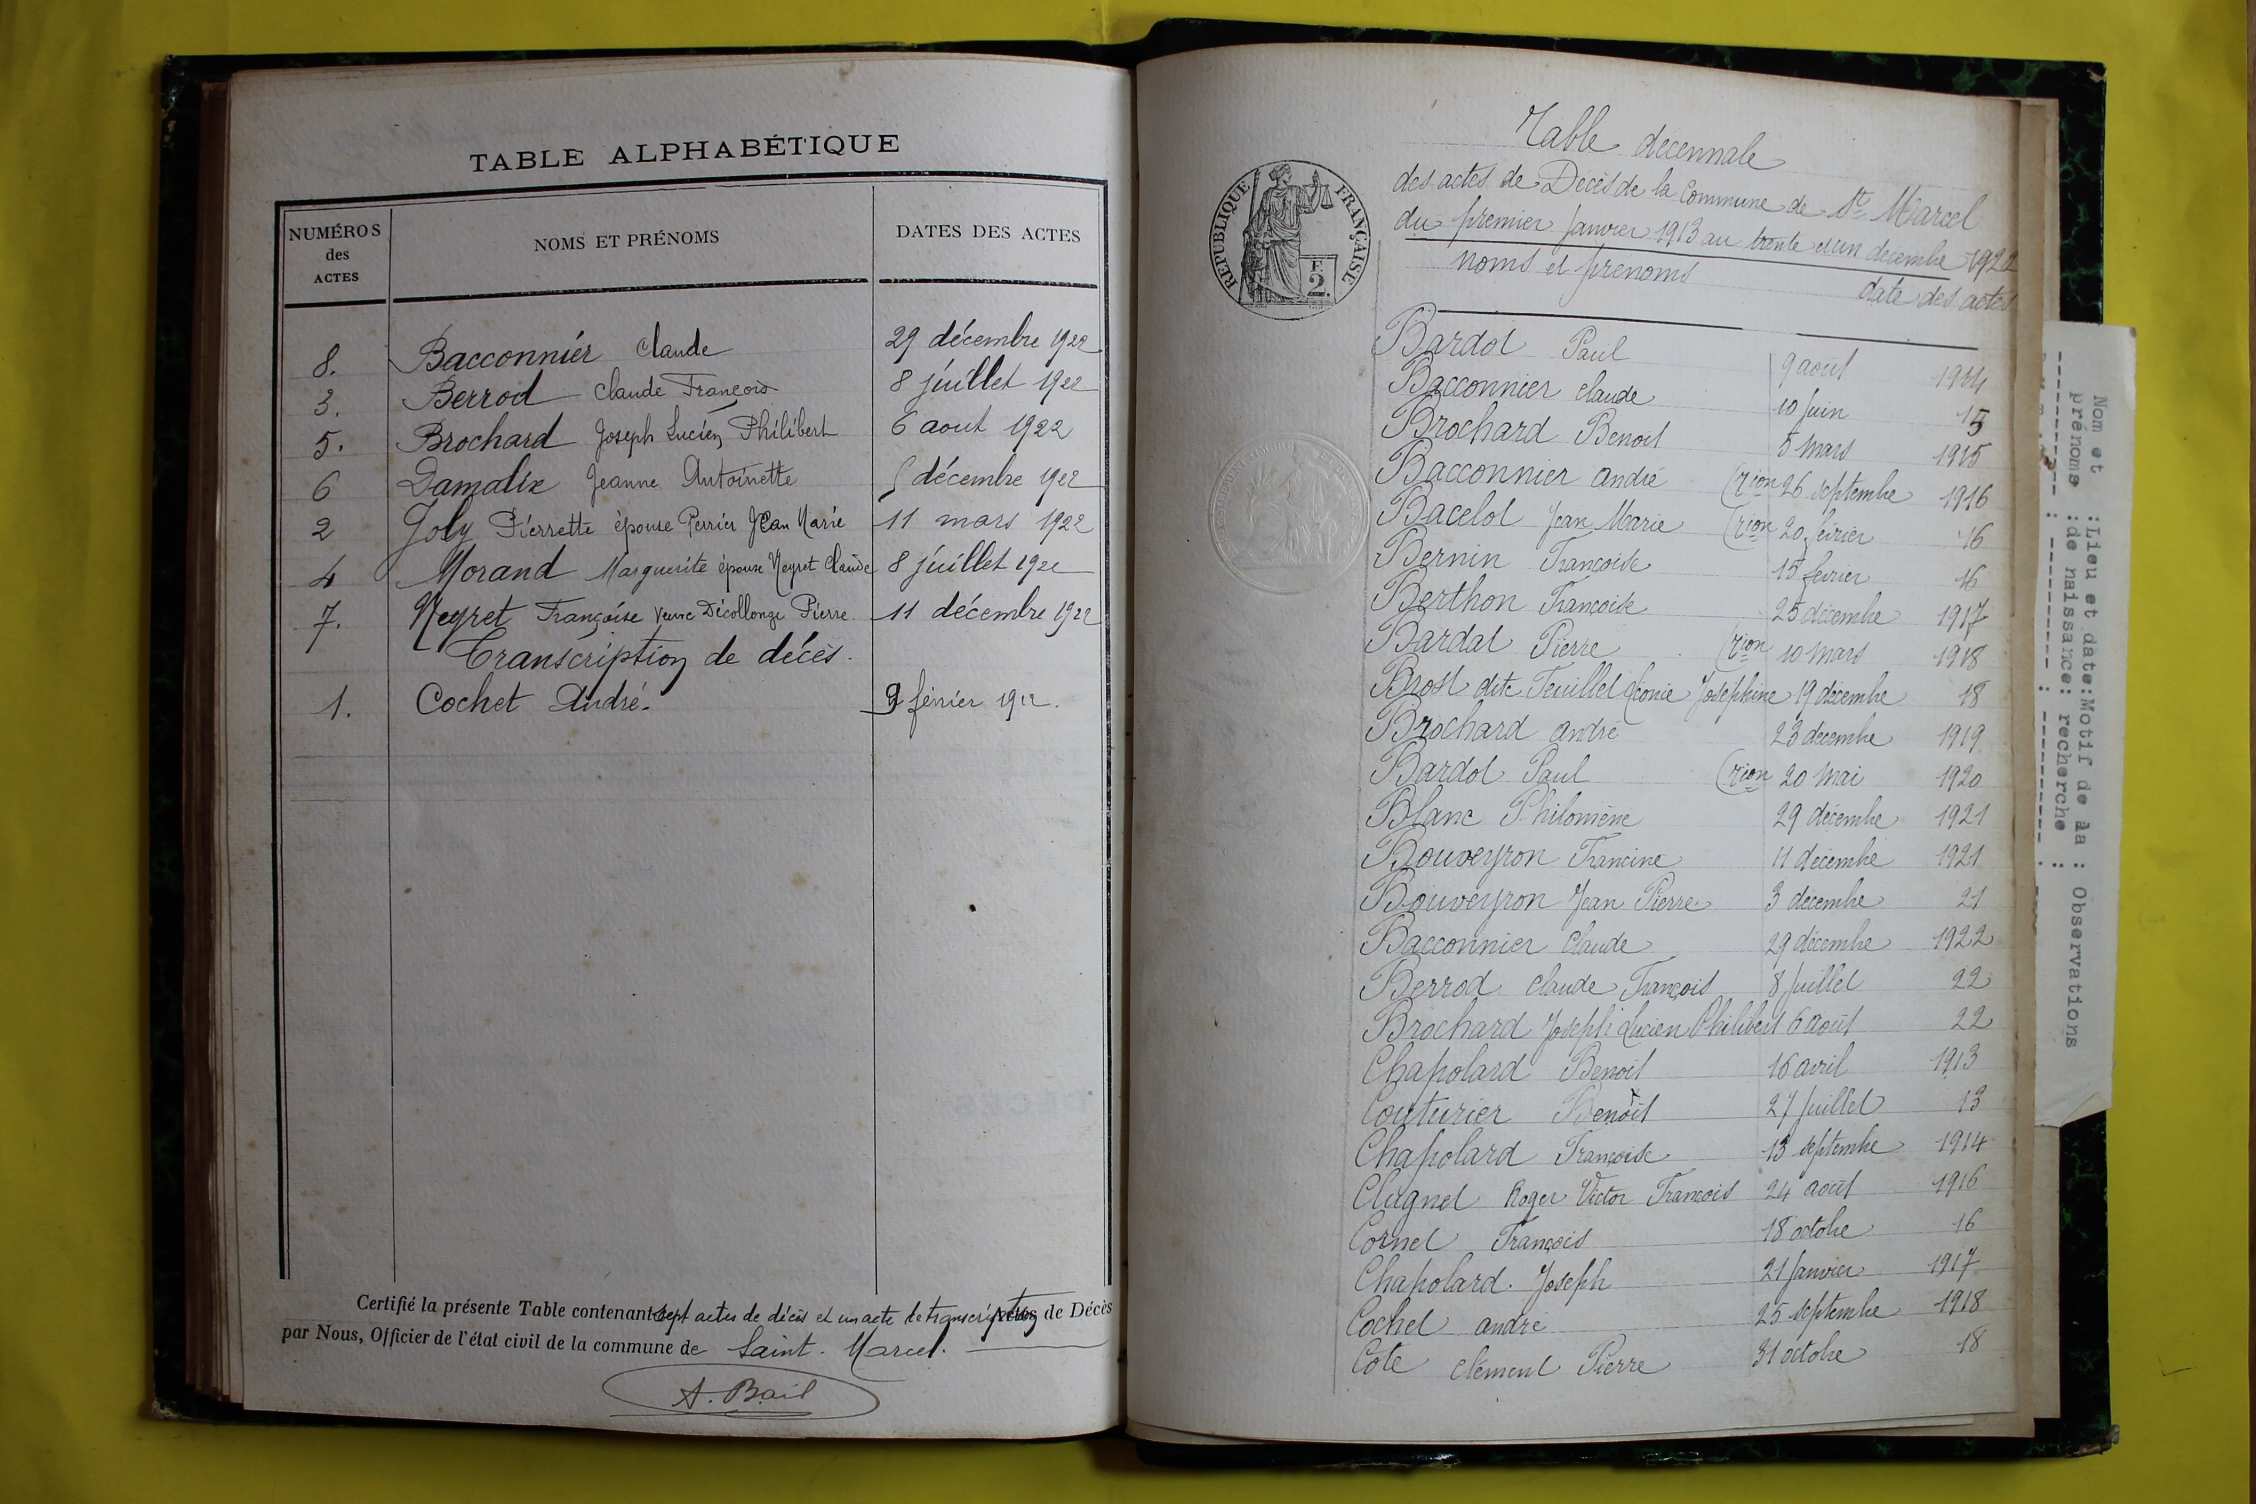 TABLE ALPHABÉTIQUE
NUMÉROS des ACTES NOMS ET PRÉNOMS DATES DES ACTES
8. Bacconnier Claude 29 décembre 1922
3. Berrod Claude François 8 juillet 1922
5. Brochard Joseph Lucien Philibert 6 aout 1922
6 Damalix Jeanne Antoinette décembre 1922
2 Joly Pierrette épouse Perrier Jean Marie 11 mars 1922
4 Morand Marguerite épouse Neyret Claude 8 juillet 1922
7. Neyret Françoise veuve Décollonge Pierre 11 décembre 1922
Transcription de décès.
1. Cochet André. 9 février 1922.
Certifié la présente Table contenant sept actes de décès et un acte de transcription Actes de Décès
par Nous, Officier de l'état civil de la commune de Saint-Marcel.
A. Bail
RÉPUBLIQUE FRANÇAISE
2 F.
Table decennale
des actes de Decès de la Commune de St Marcel
du premier Janvier 1913 au trente et un decembre 1922
noms et prenoms date des actes
Bardol Paul 9 août 1914
Bacconnier Claude 10 Juin 15
Brochard Benoit 5 Mars 1915
Bacconnier andré (rion 26 septembre 1916
Bacelot Jean Marie (rion 20 février 16
Bernin Françoise 15 fevrier 16
Berthon Françoise 25 décembre 1917
Bardat Pierre (rion 10 Mars 1918
Brost dite Feuillet Léonie Joséphine 19 décembre 18
Brochard andré 23 décembre 1919
Bardol Paul (rion 20 Mai 1920
Blanc Philomène 29 décembre 1921
Bouveyron Francine 11 décembre 1921
Bouveyron Jean Pierre 3 décembre 21
Bacconnier Claude 29 décembre 1922
Berrod Claude François 8 Juillet 22
Brochard Joseph Lucien Philibert 6 août 22
Chapolard Benoit 16 avril 1913
Couturier Benoît 27 Juillet 13
Chapolard Françoise 13 septembre 1914
Clugnet Roger Victor François 24 août 1916
Cornet François 18 octobre 16
Chapolard. Joseph 21 Janvier 1917
Cochet andré 25 septembre 1918
Cote Clément Pierre 31 octobre 18
Nom et :Lieu et date:Motif de la : Observations
prénoms :de naissance: recherche :